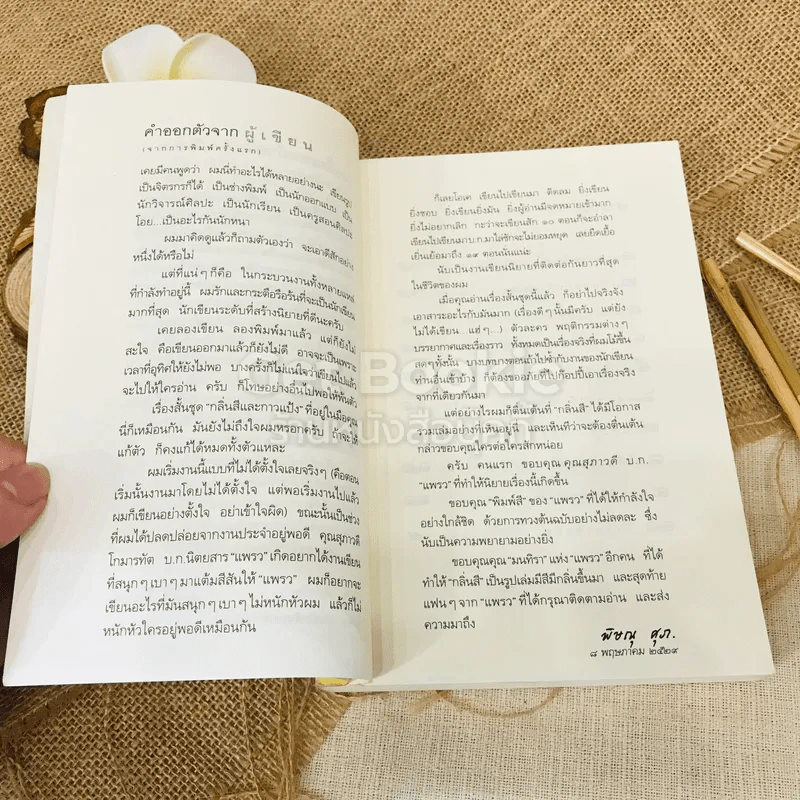 คำออกตัวจาก ผู้เขียน
(จากการพิมพ์ครั้งแรก)
เคยมีคนพูดว่า ผมนี่ทำอะไรได้หลายอย่างนะ เขียนรูป
เป็นจิตรกรก็ได้ เป็นช่างพิมพ์ เป็นนักออกแบบ เป็น
นักวิจารณ์ศิลปะ เป็นนักเรียน เป็นครูสอนศิลปะ
โอย...เป็นอะไรกันนักหนา
ผมมาคิดดูแล้วก็ถามตัวเองว่า จะเอาดีสักอย่าง
หนึ่งได้หรือไม่
แต่ที่แน่ๆก็คือ ในกระบวนงานทั้งหลายแหล่
ที่กำลังทำอยู่นี้ ผมรักและกระตือรือร้นที่จะเป็นนักเขียน
มากที่สุด นักเขียนระดับที่สร้างนิยายที่ดีนะครับ
เคยลองเขียน ลองพิมพ์มาแล้ว แต่ก็ยังไม่
สะใจ คือเขียนออกมาแล้วก็ยังไม่ดี อาจจะเป็นเพราะ
เวลาที่อุทิศให้ยังไม่พอ บางครั้งก็ไม่แน่ใจว่าเขียนไปแล้ว
จะไปให้ใครอ่าน ครับ ก็โทษอย่างอื่นไปพอให้พ้นตัว
เรื่องสั้นชุด "กลิ่นสีและกาวแป้ง" ที่อยู่ในมือคุณ
นี่ก็เหมือนกัน มันยังไม่ถึงใจผมหรอกครับ ถ้าจะให้
แก้ตัว ก็คงแก้ได้หมดทั้งตัวแหละ
ผมเริ่มงานนี้แบบที่ไม่ได้ตั้งใจเลยจริงๆ (คือตอน
เริ่มนั้นงานมาโดยไม่ได้ตั้งใจ แต่พอเริ่มงานไปแล้ว
ผมก็เขียนอย่างตั้งใจ อย่าเข้าใจผิด) ขณะนั้นเป็นช่วง
ที่ผมได้ปลดปล่อยจากงานประจำอยู่พอดี คุณสุภาวดี
โกมารทัต บ.ก.นิตยสาร "แพรว" เกิดอยากได้งานเขียน
ที่สนุกๆเบาๆมาแต้มสีสันให้ "แพรว" ผมก็อยากจะ
เขียนอะไรที่มันสนุกๆเบาๆไม่หนักหัวผม แล้วก็ไม่
หนักหัวใครอยู่พอดีเหมือนกัน
ก็เลยโอเค เขียนไปเขียนมา ติดลม ยิ่งเขียน
ยิ่งชอบ ยิ่งเขียนยิ่งมัน ยิ่งผู้อ่านมีจดหมายเข้ามาก
ยิ่งไม่อยากเลิก กะว่าจะเขียนสัก ๑๐ ตอนก็จะอำลา
เขียนไปเขียนมา บ.ก.มาไล่ชักจะไม่ยอมหยุด เลยยืดเยื้อ
เยิ่นเย้อมาถึง ๑๙ ตอนนั่นแนะ
นับเป็นงานเขียนนิยายที่ติดต่อกันยาวที่สุด
ในชีวิตของผม
เมื่อคุณอ่านเรื่องสั้นชุดนี้แล้ว ก็อย่าไปจริงจัง
เอาสาระอะไรกับมันมาก (เรื่องดีๆนั้นมีครับ แต่ยัง
ไม่ได้เขียน...แฮ่ๆ...) ตัวละคร พฤติกรรมต่างๆ
บรรยากาศและเรื่องราว ทั้งหมดเป็นเรื่องจริงที่ผมโม้ขึ้น
สดๆทั้งนั้น บางบทบางตอนถ้าไปซ้ำกับงานของนักเขียน
ท่านอื่นเข้าบ้าง ก็ต้องขออภัยที่ไปก๊อปปี้เอาเรื่องจริง
จากที่เดียวกันมา
แต่อย่างไรผมก็ตื่นเต้นที่ "กลิ่นสี" ได้มีโอกาส
รวมเล่มอย่างที่เห็นอยู่นี่ และเห็นทีว่าจะต้องตื่นเต้น
กล่าวขอบคุณใครต่อใครสักหน่อย
ครับ คนแรก ขอบคุณ คุณสุภาวดี บ.ก.
"แพรว" ที่ทำให้นิยายเรื่องนี้เกิดขึ้น
ขอบคุณ "พิมพ์สี" ของ "แพรว" ที่ได้ให้กำลังใจ
อย่างใกล้ชิด ด้วยการทวงต้นฉบับอย่างไม่ลดละ ซึ่ง
นับเป็นความพยายามอย่างยิ่ง
ขอบคุณคุณ "มนทิรา" แห่ง "แพรว" อีกคน ที่ได้
ทำให้ "กลิ่นสี" เป็นรูปเล่มมีสีมีกลิ่นขึ้นมา และสุดท้าย
แฟนๆจาก "แพรว" ที่ได้กรุณาติดตามอ่าน และส่ง
ความมาถึง
พิษณุ ศุภ.
๘ พฤษภาคม ๒๕๒๙
Get Bookie
ร้านหนังสือ